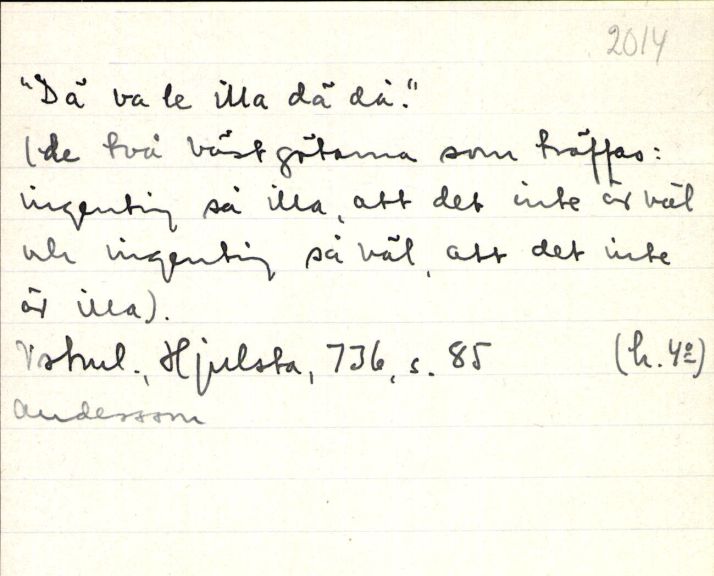 2014
"Dä va le illa dä då."
(de två västgötarna som träffas:
ingenting så illa, att det inte är väl
och ingenting så väl, att det inte
är illa).
Hjulsta, 736, s. 85 (h. 4º)
Andersson